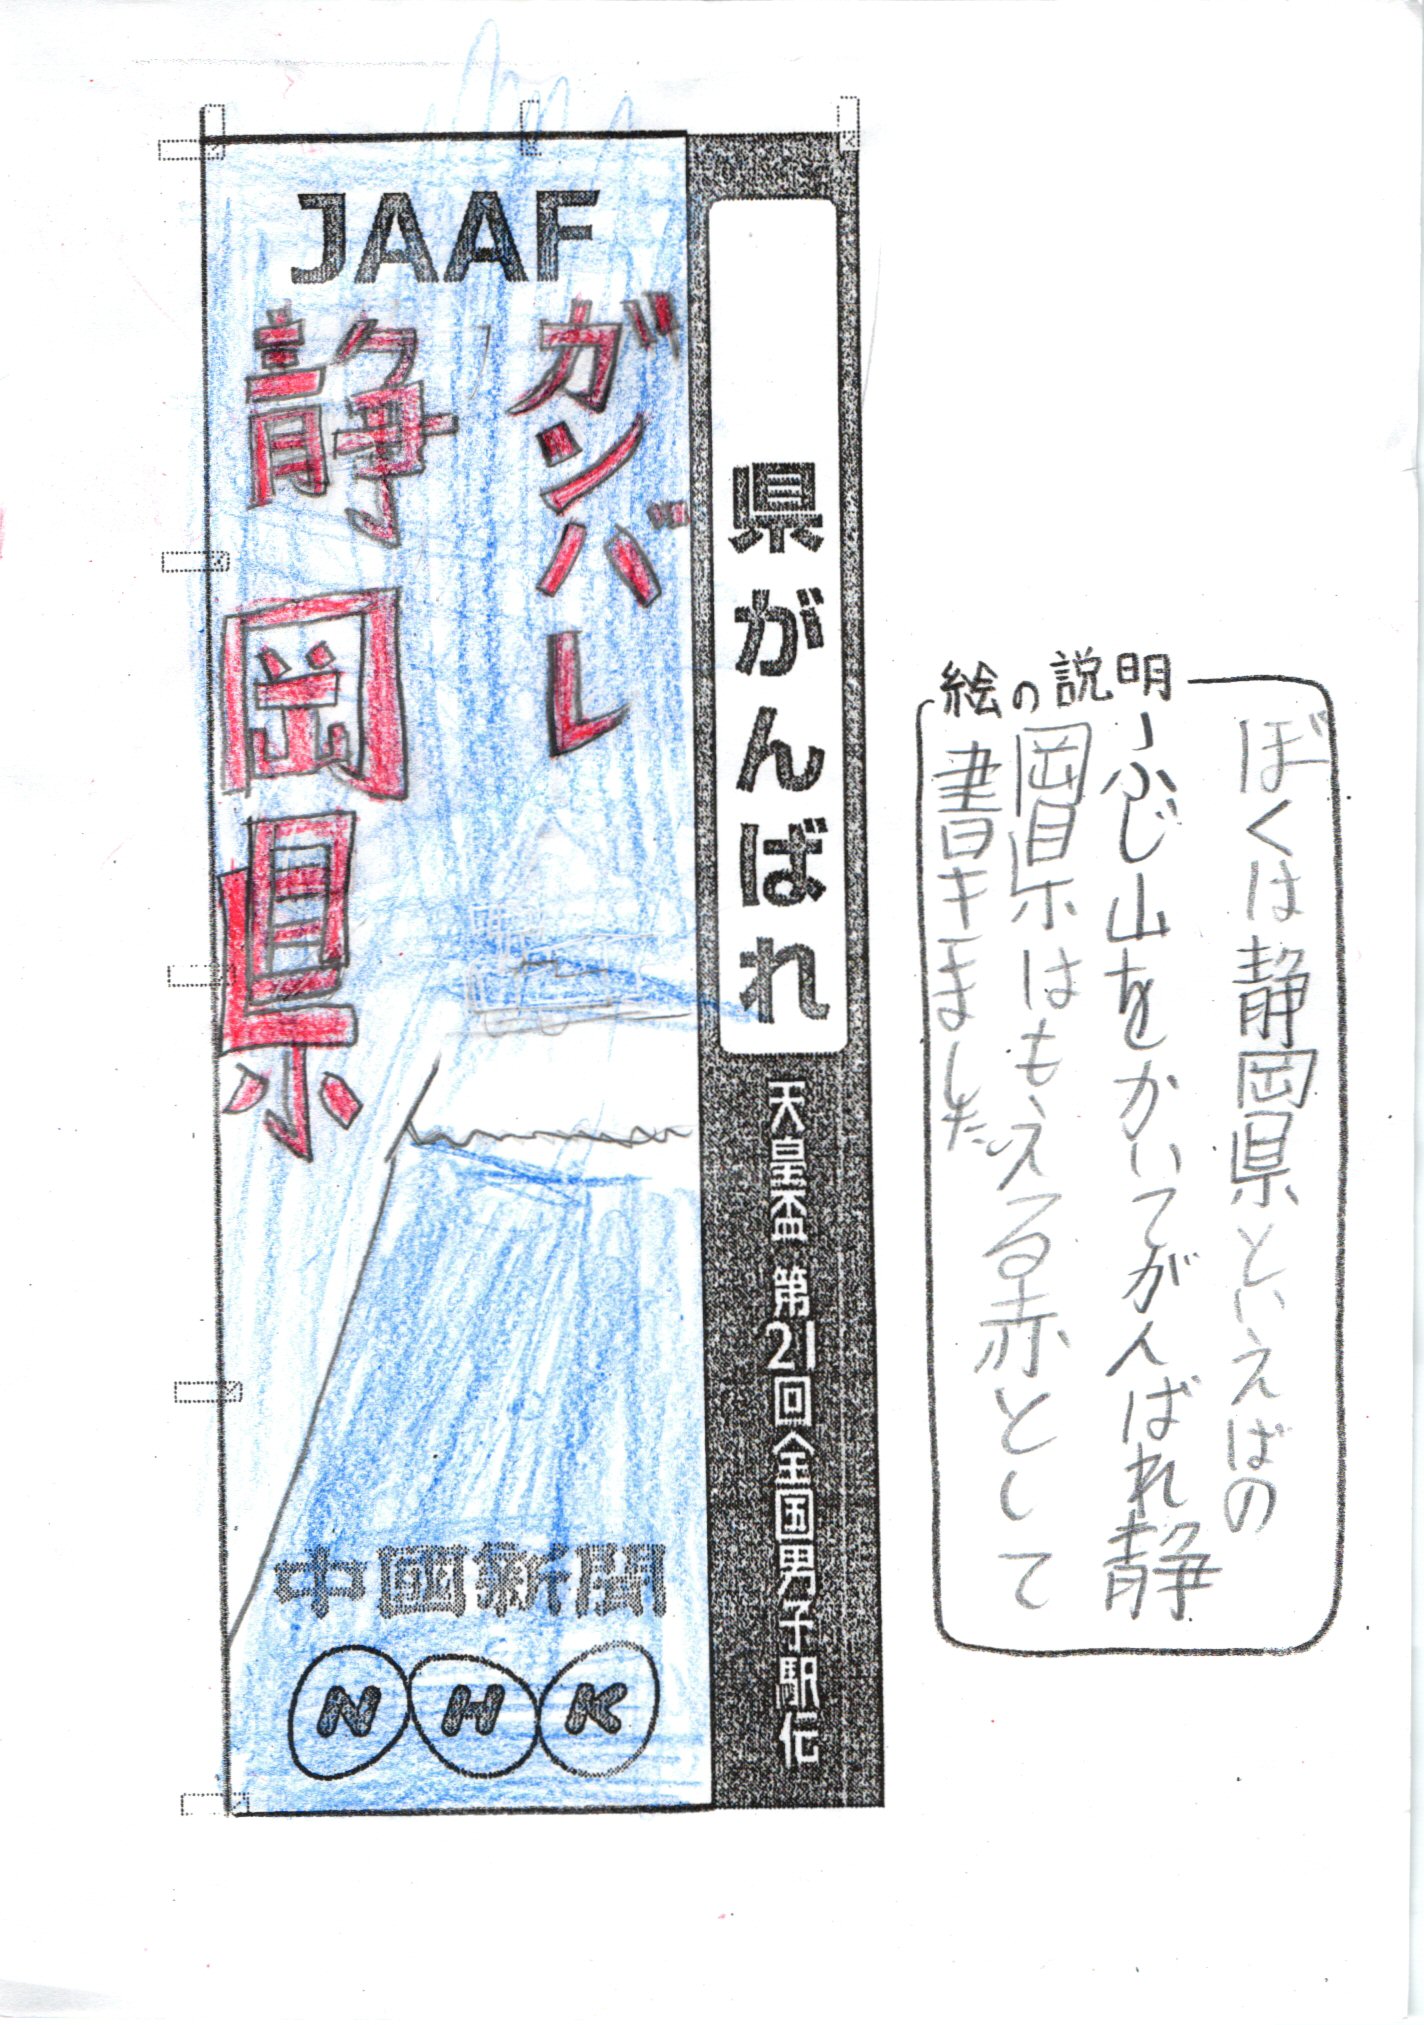 JAAF
ガンバレ
静岡県
県がんばれ
天皇盃 第21回全国男子駅伝
中國新聞
NHK
絵の説明
ぼくは静岡県といえばの
ふじ山をかいてがんばれ静
岡県はもえる赤として
書キました。